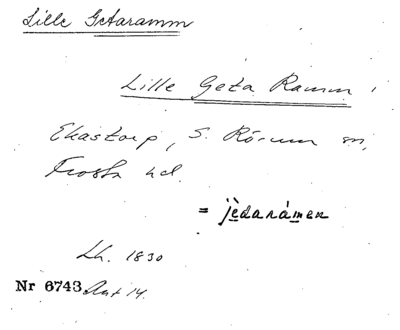 Lille Getaramm
Lille Geta Ramm i
Ekastorp, S. Rörum sn,
Frosta hd.
= jèdarámen
Lh. 1830
Nr 6743 Avt 14.